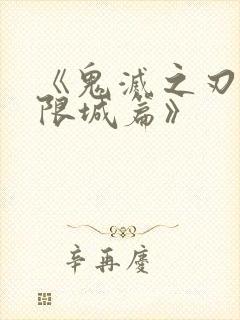 《鬼滅之刃
限城篇》
辛再慶